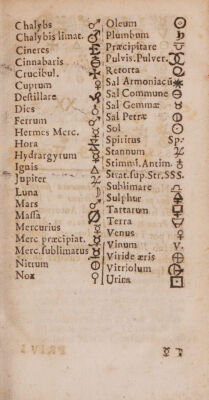 Chalybs
Chalybis limat.
Cineres
Cinnabaris
Crucibul.
Cuprum
Destillare
Dies
Ferrum
Hermes Merc.
Hora
Hydrargyrum
Ignis
Jupiter
Luna
Mars
Massa
Mercurius
Merc præcipiat.
Merc. sublimatus
Nitrum
Nox
Oleum
Plumbum
Præcipitare
Pulvis. Pulver.
Retorta
Sal Armoniacũ
Sal Commune
Sal Gemmæ
Sal Petræ
Sol
Spiritus Sp.
Stannum
Stimmi. Antim.
Strat. sup. Str. SSS.
Sublimare
Sulphur
Tartarum
Terra
Venus
Vinum V.
Viride æris
Vitriolum
Urina